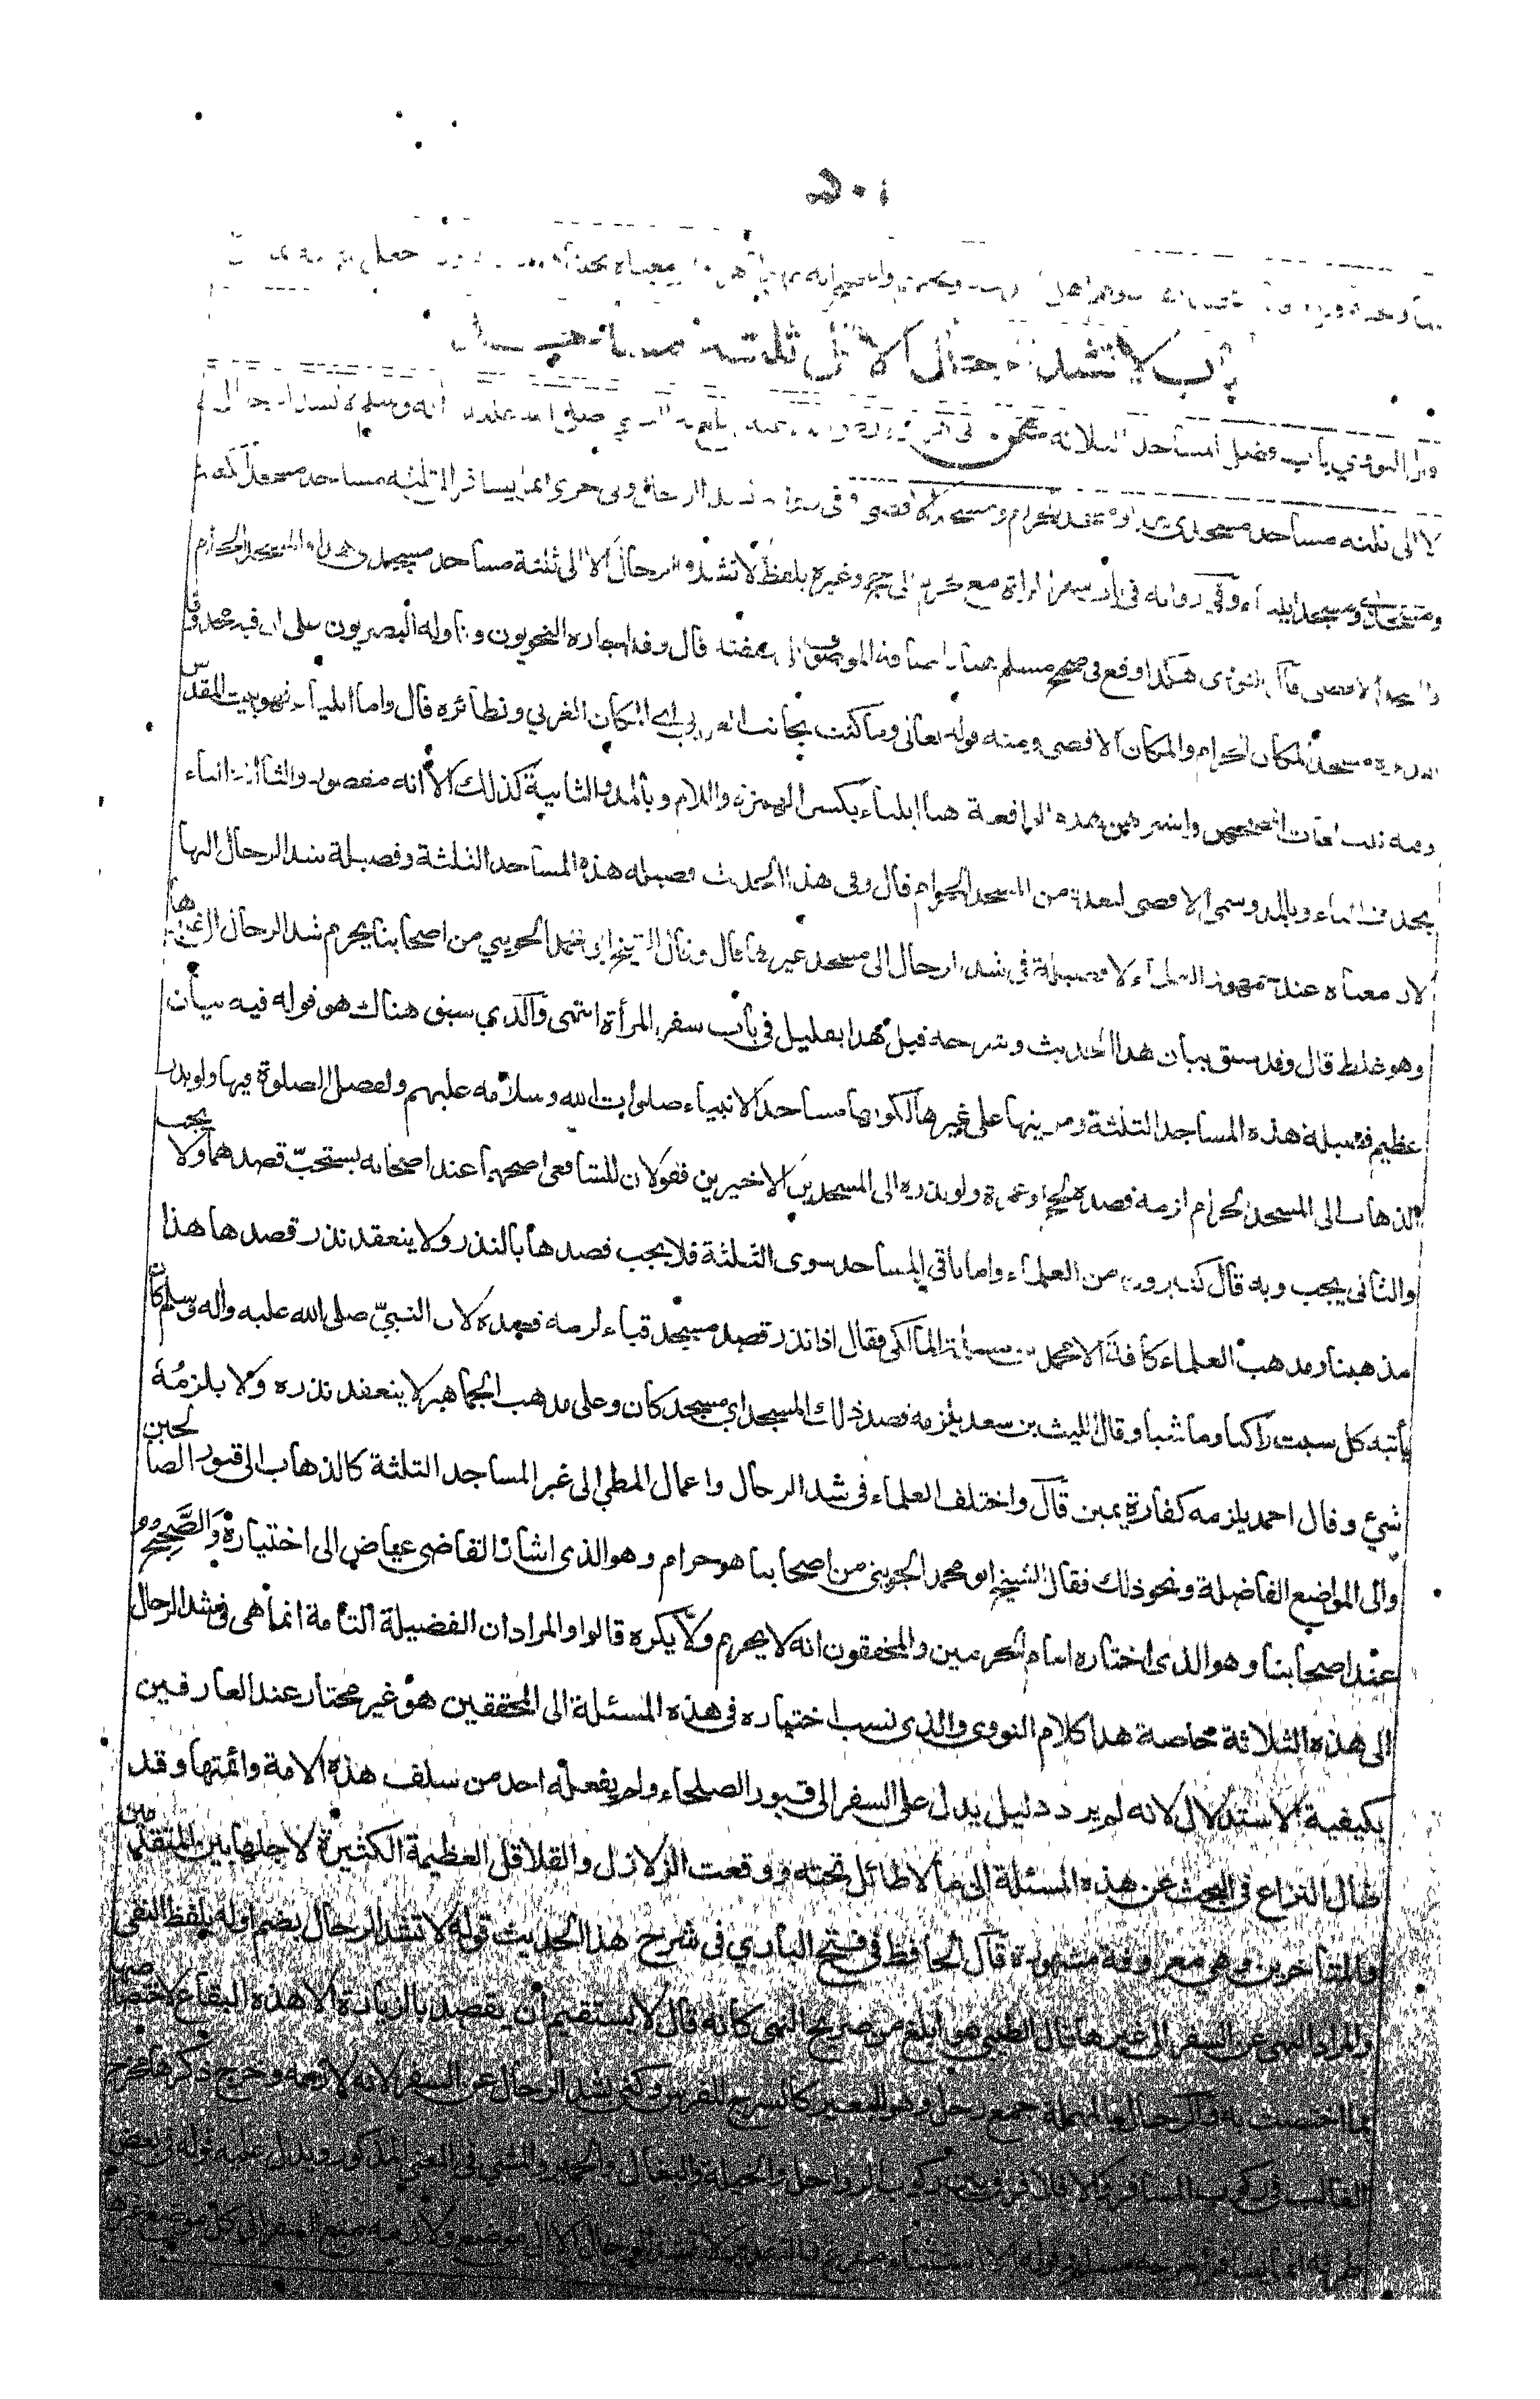 ٥٠١
باب لا تشد الرحال الا الى ثلثة مساجد
النووي باب فضل المساجد الثلاثة عن ابي هريرة رضي الله عنه يبلغ به النبي صلى الله عليه وآله وسلم لا تشد الرحال
الا الى ثلثه مساجد مسجدي هذا ومسجد الحرام ومسجد الاقصى وفي رواية تشد الرحال وفي اخرى انما يسافر الى ثلثه مساجد مسجد الكعبة
ومسجدي ومسجد ايلياء وفي رواية في باب سفر المرأة مع محرم الى حج وغيره بلفظ لا تشدوا الرحال الا الى ثلثة مساجد مسجدي هذا والمسجد الحرام
والمسجد الاقصى قال النووي هكذا وقع في صحيح مسلم هنا اضافة الموصوف الى صفته قال وقد اجازه النحويون وتأوله البصريون على ان فيه محذوفا
تقديره مسجد المكان الحرام والمكان الاقصى ومنه قوله تعالى وما كنت بجانب الغربي اي المكان الغربي ونظائره قال واما ايلياء فهو بيت المقدس
وفيه ثلث لغات افصحهن واشهرهن هذه الواقعة هنا ايلياء بكسر الهمزة واللام وبالمد والثانية كذلك الا انه مقصور والثالثة الياء
بحذف الياء وبالمد وسمي الاقصى لبعده من المسجد الحرام قال وفي هذا الحديث فضيلة هذه المساجد الثلثة وفضيلة شد الرحال اليها
لان معناه عند جمهور العلماء لا فضيلة في شد الرحال الى مسجد غيرها قال وقال الشيخ ابو محمد الجويني من اصحابنا يحرم شد الرحال الى غيرها
وهو غلط قال وقد سبق بيان هذا الحديث وشرحه قبل هذا بقليل في باب سفر المرأة انتهى والذي سبق هناك هو قوله فيه بيان
عظيم فضيلة هذه المساجد الثلثة ومزيتها على غيرها لكونها مساجد الانبياء صلوات الله وسلامه عليهم ولفضل الصلوة فيها ولو نذر
الذهاب الى المسجد الحرام لزمه قصده لحج او عمرة ولو نذره الى المسجدين الاخيرين فقولان للشافعي اصحهما عند اصحابه يستحب قصدهما ولا يجب
والثاني يجب وبه قال كثيرون من العلماء واما باقي المساجد سوى الثلثة فلا يجب قصدها بالنذر ولا ينعقد نذر قصدها هذا
مذهبنا ومذهب العلماء كافة الا محمد بن مسلمة المالكي فقال اذا نذر قصد مسجد قباء لزمه قصده لان النبي صلى الله عليه وآله وسلم كان
يأتيه كل سبت راكبا وماشيا وقال الليث بن سعد يلزمه قصد ذلك المسجد اي مسجد كان وعلى مذهب الجماهير لا ينعقد نذره ولا يلزمه
شيء وقال احمد يلزمه كفارة يمين قال واختلف العلماء في شد الرحال واعمال المطي الى غير المساجد الثلثة كالذهاب الى قبور الصالحين
والى المواضع الفاضلة ونحو ذلك فقال الشيخ ابو محمد الجويني من اصحابنا هو حرام وهو الذي اشار القاضي عياض الى اختياره والصحيح
عند اصحابنا وهو الذي اختاره امام الحرمين والمحققون انه لا يحرم ولا يكره قالوا والمراد ان الفضيلة التامة انما هي في شد الرحال
الى هذه الثلاثة خاصة هذا كلام النووي والذي نسب اختياره في هذه المسئلة الى المحققين هو غير مختار عند العارفين
بكيفية الاستدلال لانه لم يرد دليل يدل على السفر الى قبور الصلحاء ولم يفعله احد من سلف هذه الامة وائمتها وقد
طال النزاع في البحث عن هذه المسئلة الى ما لا طائل تحته ووقعت الزلازل والقلاقل العظيمة الكثيرة لاجلها بين المتقدمين
والمتأخرين وهي معروفة مشهورة قال الحافظ في فتح الباري في شرح هذا الحديث قوله لا تشد الرحال بضم اوله بلفظ النفي
والمراد النهي عن السفر الى غيرها قال الطيبي هو ابلغ من صريح النهي كانه قال لا يستقيم ان يقصد بالزيارة الا هذه البقاع لاختصاصها
بما اختصت به والرحال بالمهملة جمع رحل وهو للبعير كالسرج للفرس وكنى بشد الرحال عن السفر لانه لازمه وخرج ذكرها مخرج
الغالب في ركوب المسافر والا فلا فرق بين ركوب الرواحل والخيل والبغال والحمير والمشي في المعنى المذكور ويدل عليه قوله في بعض
طرقه انما يسافر اخرجه مسلم وقوله الا استثناء مفرغ والتقدير لا تشد الرحال الى موضع ولازمه منع السفر الى كل موضع غيرها